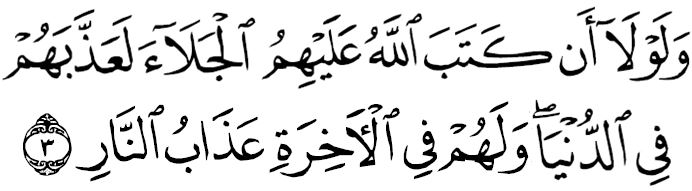 وَلَوْلَآ أَن كَتَبَ ٱللَّهُ عَلَيْهِمُ ٱلْجَلَآءَ لَعَذَّبَهُمْ
فِي ٱلدُّنْيَاۖ وَلَهُمْ فِي ٱلْأَخِرَةِ عَذَابُ ٱلنَّارِ ٣